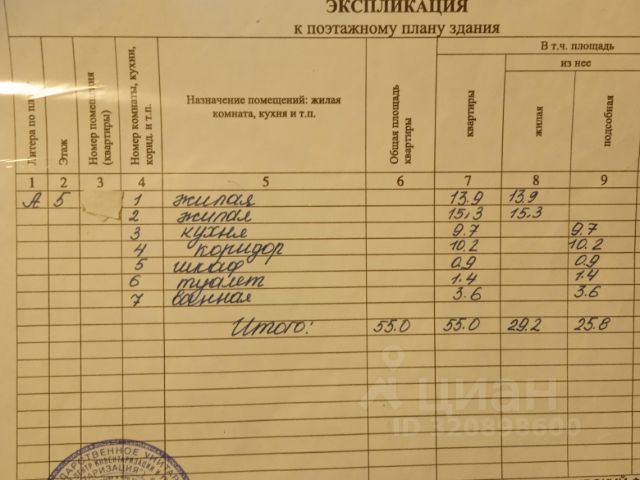 ЭКСПЛИКАЦИЯ
к поэтажному плану здания
Литера по пл
Этаж
Номер помещения (квартиры)
Номер комнаты, кухни, корид. и т.п.
Назначение помещений: жилая комната, кухня и т.п.
Общая площадь квартиры
В т.ч. площадь
из нее
квартиры
жилая
подсобная
1 2 3 4 5 6 7 8 9
А 5 1 жилая 13.9 13.9
2 жилая 15.3 15.3
3 кухня 9.7 9.7
4 коридор 10.2 10.2
5 шкаф 0.9 0.9
6 туалет 1.4 1.4
7 ванная 3.6 3.6
Итого: 55.0 55.0 29.2 25.8
циан
ID 320898600